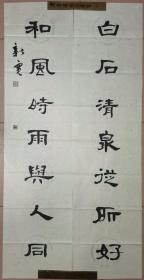 白石清泉從所好
和風時雨與人同